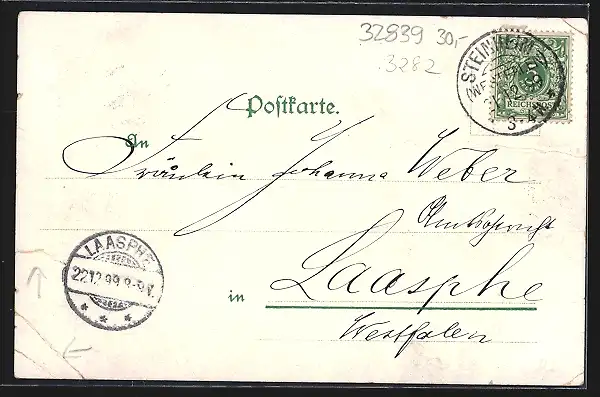 32839 30,-
3282
STEINHEIM
(WESTF.)
3-4
REICHSPOST
Postkarte.
An
Fräulein Johanna Weber
Amtsgericht
LAASPHE
22.12.99.8-9V.
in Laasphe
Westfalen